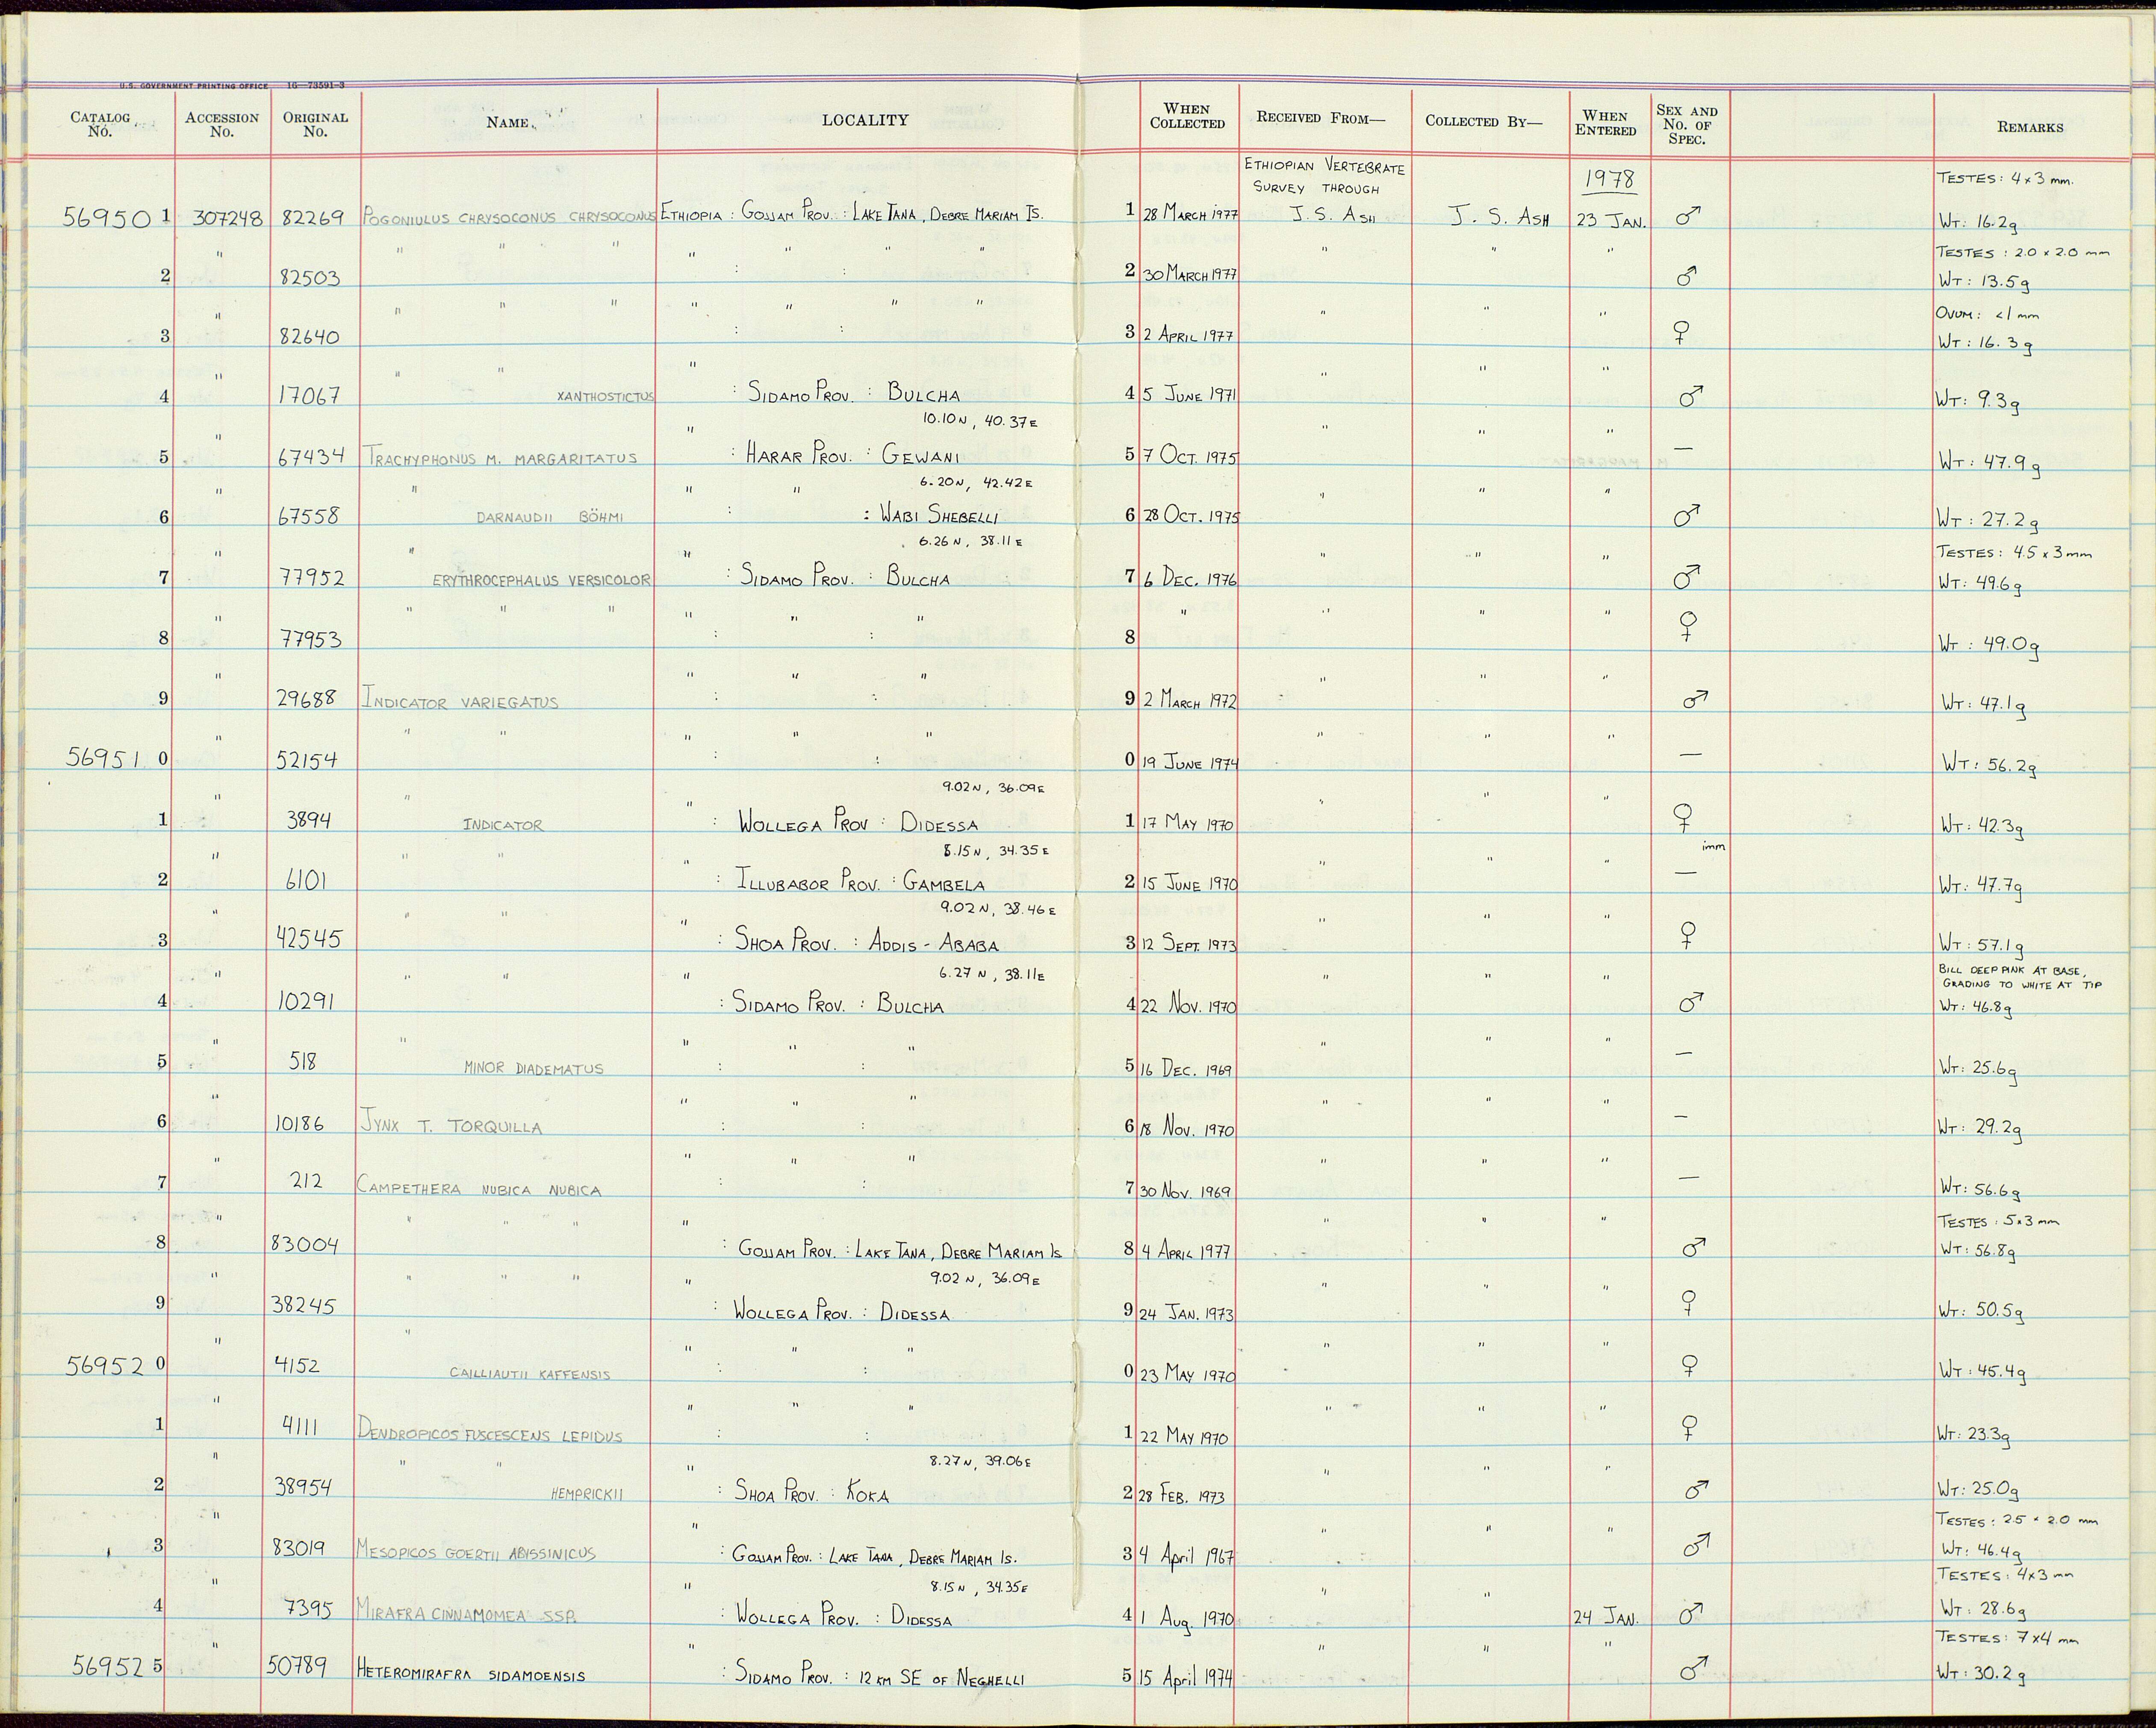 U.S. GOVERNMENT PRINTING OFFICE 16—73591-3
CATALOG No. ACCESSION No. ORIGINAL No. NAME LOCALITY WHEN COLLECTED RECEIVED FROM— COLLECTED BY— WHEN ENTERED SEX AND No. OF SPEC. REMARKS
ETHIOPIAN VERTEBRATE
SURVEY THROUGH 1978 TESTES: 4 x 3 mm.
56950 1 307248 82269 POGONIULUS CHRYSOCONUS CHRYSOCONUS ETHIOPIA : GOJJAM PROV. : LAKE TANA, DEBRE MARIAM IS. 1 28 MARCH 1977 J. S. ASH J. S. ASH 23 JAN. ♂ WT: 16.2g
" " " " " " " " " " " TESTES : 2.0 x 2.0 mm
2 82503 : : 2 30 MARCH 1977 ♂ WT: 13.5g
" " " " " " " " " " " OVUM: <1 mm
3 82640 : : 3 2 APRIL 1977 ♀ WT: 16.3g
" " " " " " "
4 17067 XANTHOSTICTUS : SIDAMO PROV. : BULCHA 4 5 JUNE 1971 ♂ WT: 9.3g
10.10 N, 40.37 E
" " " " "
5 67434 TRACHYPHONUS M. MARGARITATUS : HARAR PROV. : GEWANI 5 7 OCT. 1975 — WT: 47.9g
6.20 N, 42.42 E
" " " " " " "
6 67558 DARNAUDII BÖHMI : : WABI SHEBELLI 6 28 OCT. 1975 ♂ WT: 27.2g
6.26 N, 38.11 E
" " " " " " TESTES: 4.5 x 3 mm
7 77952 ERYTHROCEPHALUS VERSICOLOR : SIDAMO PROV. : BULCHA 7 6 DEC. 1976 ♂ WT: 49.6g
" " " " " " " " " " "
8 77953 : : 8 ♀ WT: 49.0g
" " " " " " "
9 29688 INDICATOR VARIEGATUS : : 9 2 MARCH 1972 ♂ WT: 47.1g
" " " " " " " " "
56951 0 52154 : : 0 19 JUNE 1974 — WT: 56.2g
9.02 N, 36.09 E
" " " " " "
1 3894 INDICATOR : WOLLEGA PROV : DIDESSA 1 17 MAY 1970 ♀ WT: 42.3g
8.15 N, 34.35 E imm
" " " " " " "
2 6101 : ILLUBABOR PROV. : GAMBELA 2 15 JUNE 1970 — WT: 47.7g
9.02 N, 38.46 E
" " " " " " "
3 42545 : SHOA PROV. : ADDIS-ABABA 3 12 SEPT. 1973 ♀ WT: 57.1g
6.27 N, 38.11 E BILL DEEP PINK AT BASE,
" " " " " " " GRADING TO WHITE AT TIP
4 10291 : SIDAMO PROV. : BULCHA 4 22 NOV. 1970 ♂ WT: 46.8g
" " " " " " " "
5 518 MINOR DIADEMATUS : : 5 16 DEC. 1969 — WT: 25.6g
" " " " " " "
6 10186 JYNX T. TORQUILLA : : 6 18 NOV. 1970 — WT: 29.2g
" " " " " " "
7 212 CAMPETHERA NUBICA NUBICA : : 7 30 NOV. 1969 — WT: 56.6g
" " " " " " " " " TESTES : 5 x 3 mm
8 83004 : GOJJAM PROV. : LAKE TANA, DEBRE MARIAM IS 8 4 APRIL 1977 ♂ WT: 56.8g
9.02 N, 36.09 E
" " " " " " " "
9 38245 : WOLLEGA PROV. : DIDESSA 9 24 JAN. 1973 ♀ WT: 50.5g
" " " " " " " "
56952 0 4152 CAILLIAUTII KAFFENSIS : : 0 23 MAY 1970 ♀ WT: 45.4g
" " " " " " "
1 4111 DENDROPICOS FUSCESCENS LEPIDUS : : 1 22 MAY 1970 ♀ WT: 23.3g
8.27 N, 39.06 E
" " " " " " "
2 38954 HEMPRICKII : SHOA PROV. : KOKA 2 28 FEB. 1973 ♂ WT: 25.0g
" " " " " TESTES : 2.5 x 2.0 mm
3 83019 MESOPICOS GOERTII ABYSSINICUS : GOJJAM PROV. : LAKE TANA, DEBRE MARIAM IS. 3 4 April 1967 ♂ WT: 46.4g
8.15 N, 34.35 E TESTES: 4 x 3 mm
" " " "
4 7395 MIRAFRA CINNAMOMEA SSP. : WOLLEGA PROV. : DIDESSA 4 1 Aug. 1970 24 JAN. ♂ WT: 28.6g
" " " " " TESTES: 7 x 4 mm
56952 5 50789 HETEROMIRAFRA SIDAMOENSIS : SIDAMO PROV. : 12 KM SE OF NEGHELLI 5 15 April 1974 ♂ WT: 30.2g